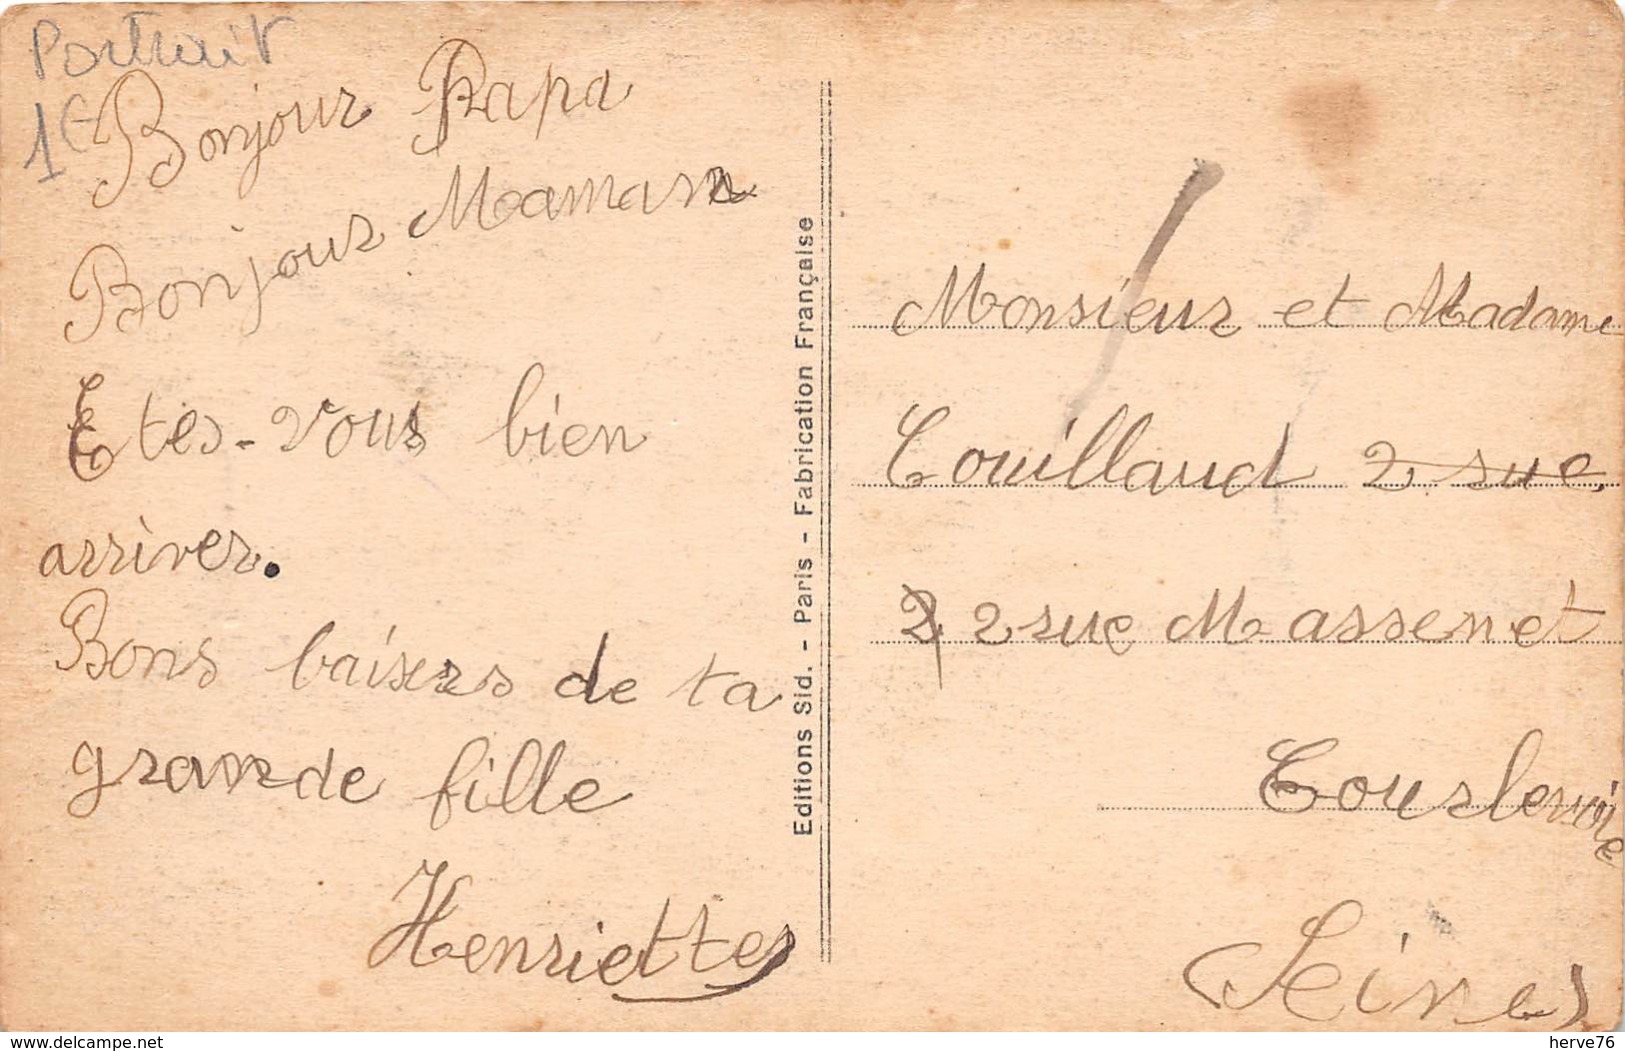 Portrait
1€
Bonjour Papa
Bonjour Maman
Etes-vous bien
arriver.
Bons baisers de ta
grande fille
Henriette
Editions Sid. - Paris - Fabrication Française
Monsieur et Madame
Couillaud 2 rue
2 2 rue Massenet
Courlevoie
(Seine)
delcampe.net
herve76